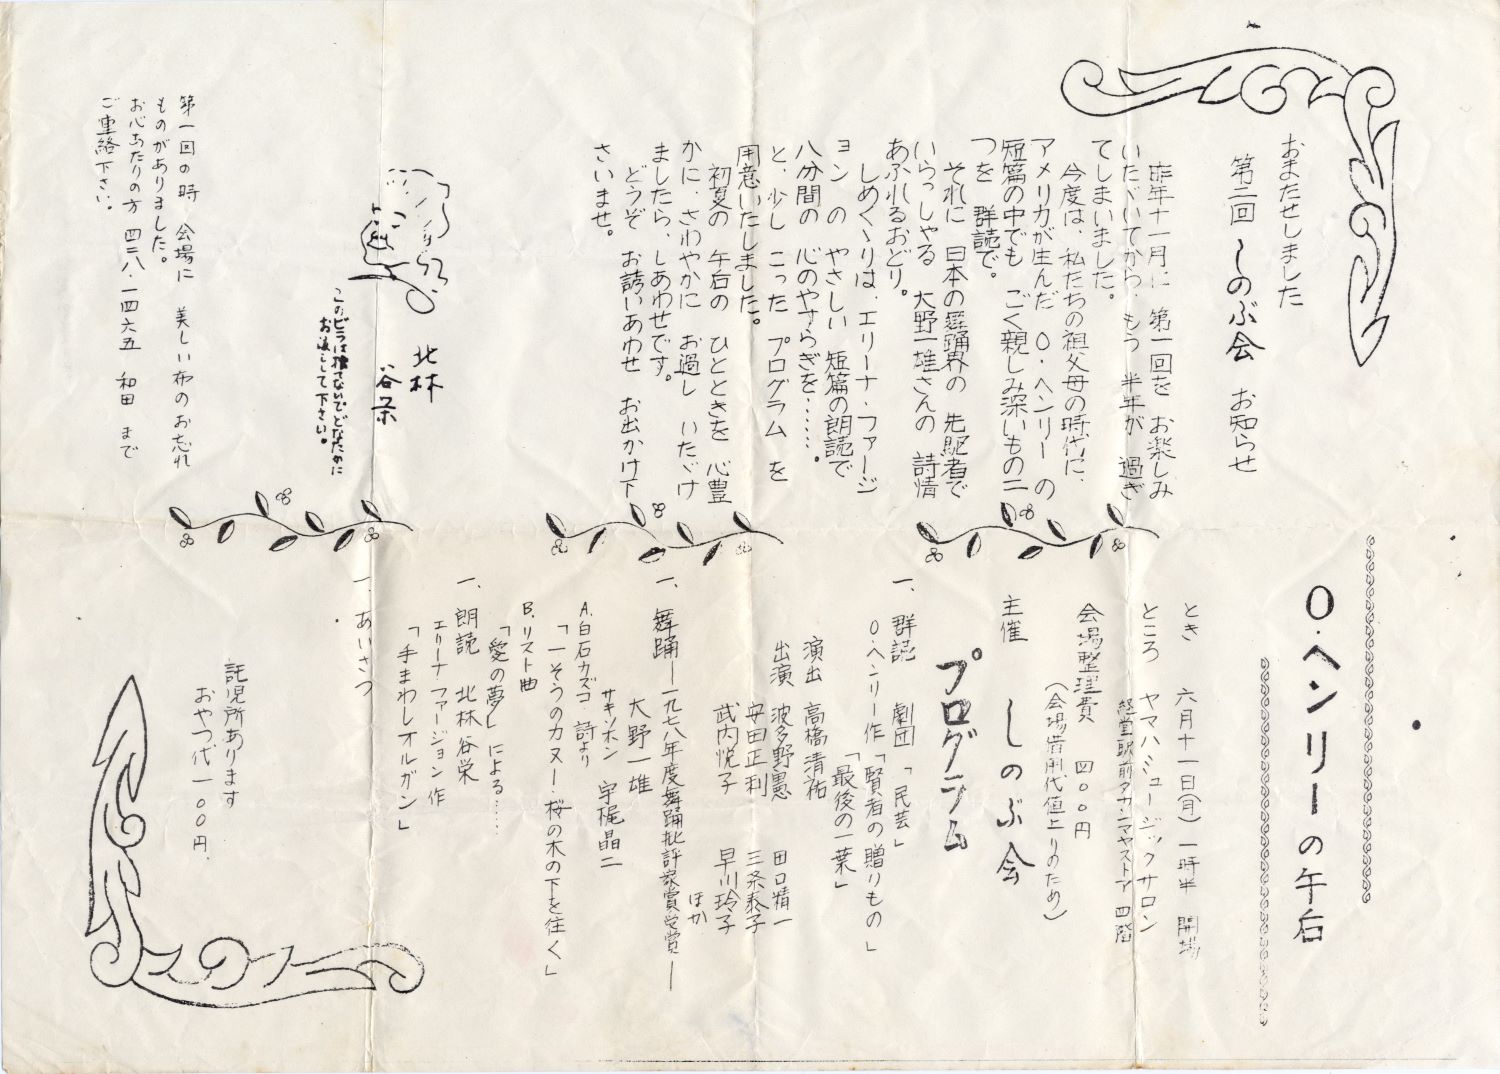 おまたせしました
第二回 しのぶ会 お知らせ
昨年十一月に 第一回を お楽しみ
いたゞいてから、もう 半年が 過ぎ
てしまいました。
今度は、私たちの祖父母の時代に、
アメリカが生んだ O・ヘンリー の
短篇の中でも ごく親しみ深いもの二
つを 群読で。
それに 日本の舞踊界の 先駆者で
いらっしゃる 大野一雄さんの 詩情
あふれるおどり。
しめくゝりは、エリーナ・ファージ
ョン の やさしい 短篇の朗読で
八分間の 心のやすらぎを……。
と、少し こった プログラム を
用意いたしました。
初夏の 午后の ひとときを 心豊
かに、さわやかに お過し いたゞけ
ましたら、しあわせです。
どうぞ お誘いあわせ お出かけ下
さいませ。
北林
谷栄
このビラは捨てないでどなたかに
お渡しして下さい。
第一回の時 会場に 美しい布のお忘れ
ものがありました。
お心あたりの方 四二八・一四六五 和田 まで
ご連絡下さい。
O・ヘンリーの午后
とき 六月十一日(月) 一時半 開場
ところ ヤマハミュージックサロン
経堂駅前タカシマヤストア四階
会場整理費 四〇〇円
(会場借用代値上りのため)
主催 しのぶ会
プログラム
一、群読 劇団「民芸」
O・ヘンリー作「賢者の贈りもの」
「最後の一葉」
演出 高橋清祐
出演 波多野憲 田口精一
安田正利 三条泰子
武内悦子 早川玲子
ほか
一、舞踊―一九七八年度舞踊批評家賞受賞―
大野一雄
サキソホン 宇梶晶二
A.白石カズコ 詩より
「一そうのカヌー・桜の木の下を往く」
B.リスト曲
「愛の夢」による……
一、朗読 北林谷栄
エリーナファージョン作
「手まわしオルガン」
一、あいさつ
託児所あります
おやつ代一〇〇円.